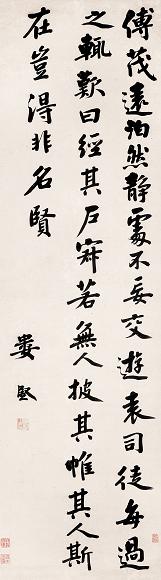 傅茂遠泊然静處不妄交遊袁司徒每過
之輒歎曰經其戶寂若無人披其帷其人斯
在豈得非名賢
婁堅